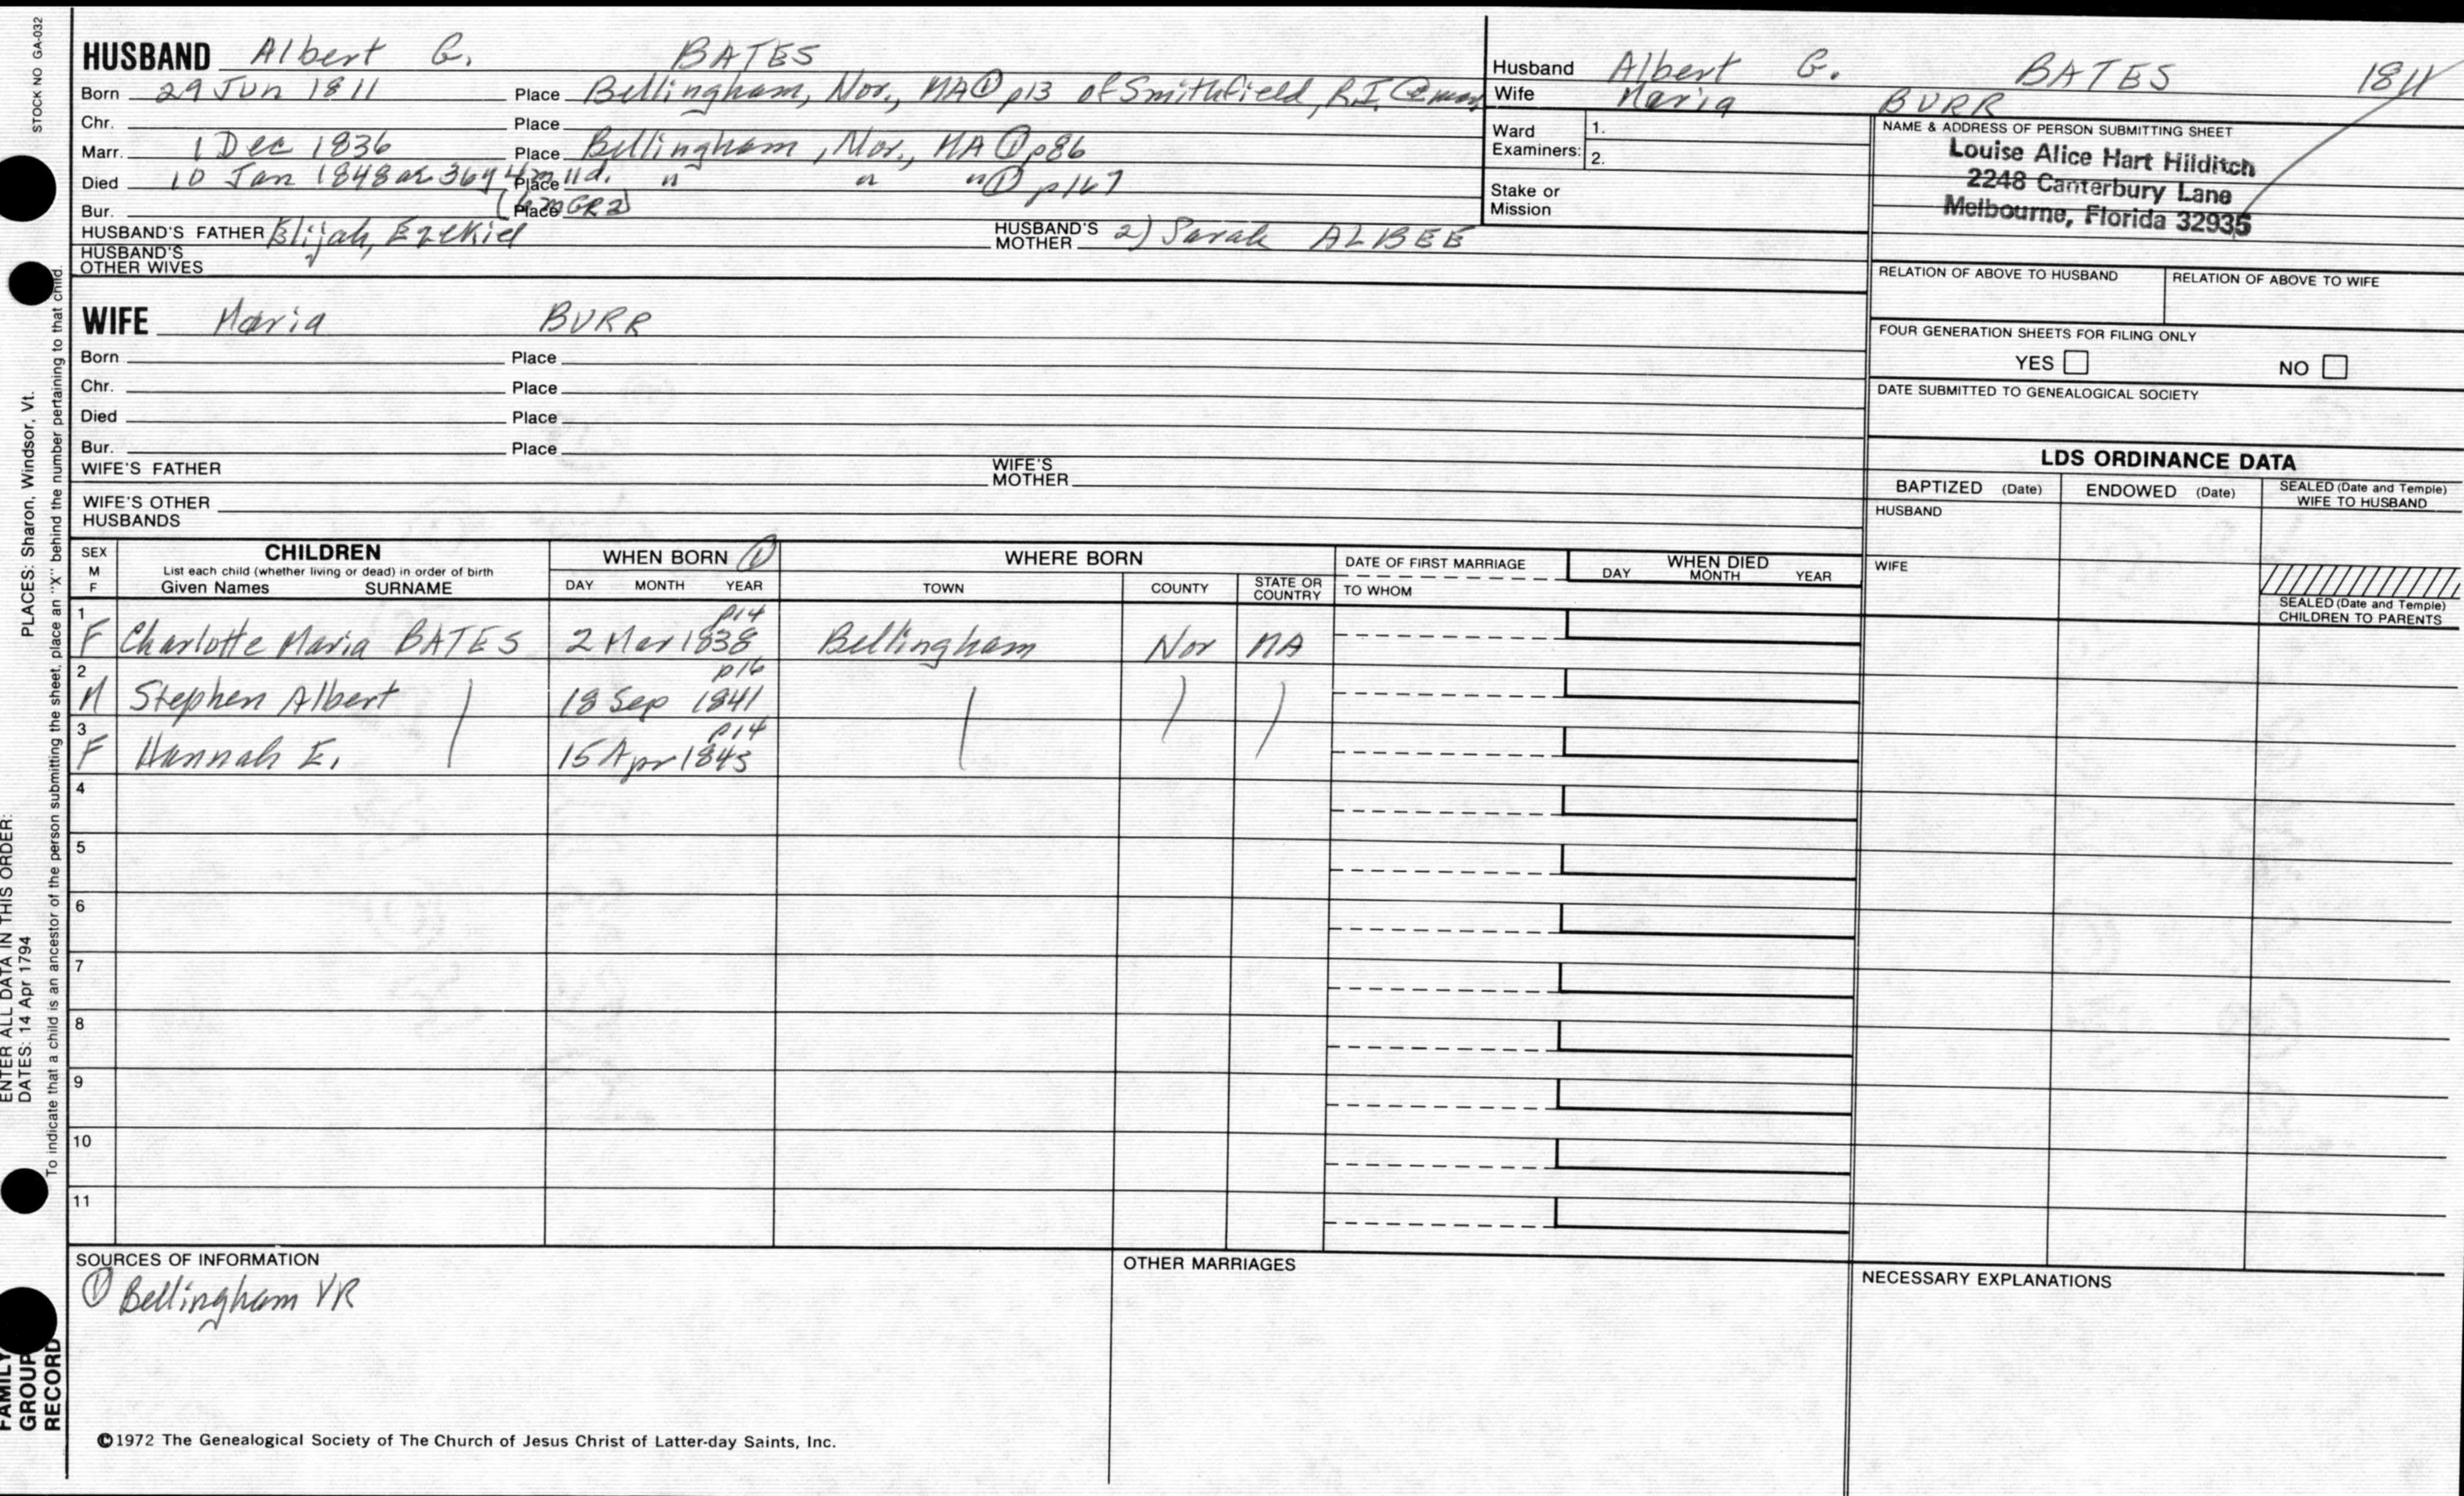 STOCK NO GA-032
HUSBAND Albert G. BATES
Born 29 Jun 1811 Place Bellingham, Nor., MA ① p13 of Smithfield, R.I. @ mar
Chr. Place
Marr. 1 Dec 1836 Place Bellingham, Nor., MA ① p86
Died 10 Jan 1848 ae 36y 4m 11d. Place " " " ① p167
Bur. Place GR2)
HUSBAND'S FATHER Elijah, Ezekiel HUSBAND'S MOTHER 2) Sarah ALBEE
HUSBAND'S OTHER WIVES
Husband Albert G. BATES 1811
Wife Maria BURR
Ward Examiners: 1.
2.
Stake or Mission
NAME & ADDRESS OF PERSON SUBMITTING SHEET
Louise Alice Hart Hilditch
2248 Canterbury Lane
Melbourne, Florida 32935
RELATION OF ABOVE TO HUSBAND RELATION OF ABOVE TO WIFE
FOUR GENERATION SHEETS FOR FILING ONLY
YES NO
DATE SUBMITTED TO GENEALOGICAL SOCIETY
WIFE Maria BURR
Born Place
Chr. Place
Died Place
Bur. Place
WIFE'S FATHER WIFE'S MOTHER
WIFE'S OTHER HUSBANDS
LDS ORDINANCE DATA
BAPTIZED (Date) ENDOWED (Date) SEALED (Date and Temple) WIFE TO HUSBAND
HUSBAND
WIFE
SEALED (Date and Temple) CHILDREN TO PARENTS
SEX M F CHILDREN WHEN BORN ① WHERE BORN DATE OF FIRST MARRIAGE WHEN DIED
List each child (whether living or dead) in order of birth
Given Names SURNAME DAY MONTH YEAR TOWN COUNTY STATE OR COUNTRY TO WHOM DAY MONTH YEAR
p14
1 F Charlotte Maria BATES 2 Mar 1838 Bellingham Nor MA
p16
2 M Stephen Albert 18 Sep 1841
p14
3 F Hannah E. 15 Apr 1843
4
5
6
7
8
9
10
11
SOURCES OF INFORMATION
① Bellingham VR
OTHER MARRIAGES
NECESSARY EXPLANATIONS
©1972 The Genealogical Society of The Church of Jesus Christ of Latter-day Saints, Inc.
FAMILY
GROUP
RECORD
ENTER ALL DATA IN THIS ORDER:
DATES: 14 Apr 1794 PLACES: Sharon, Windsor, Vt.
To indicate that a child is an ancestor of the person submitting the sheet, place an "X" behind the number pertaining to that child.